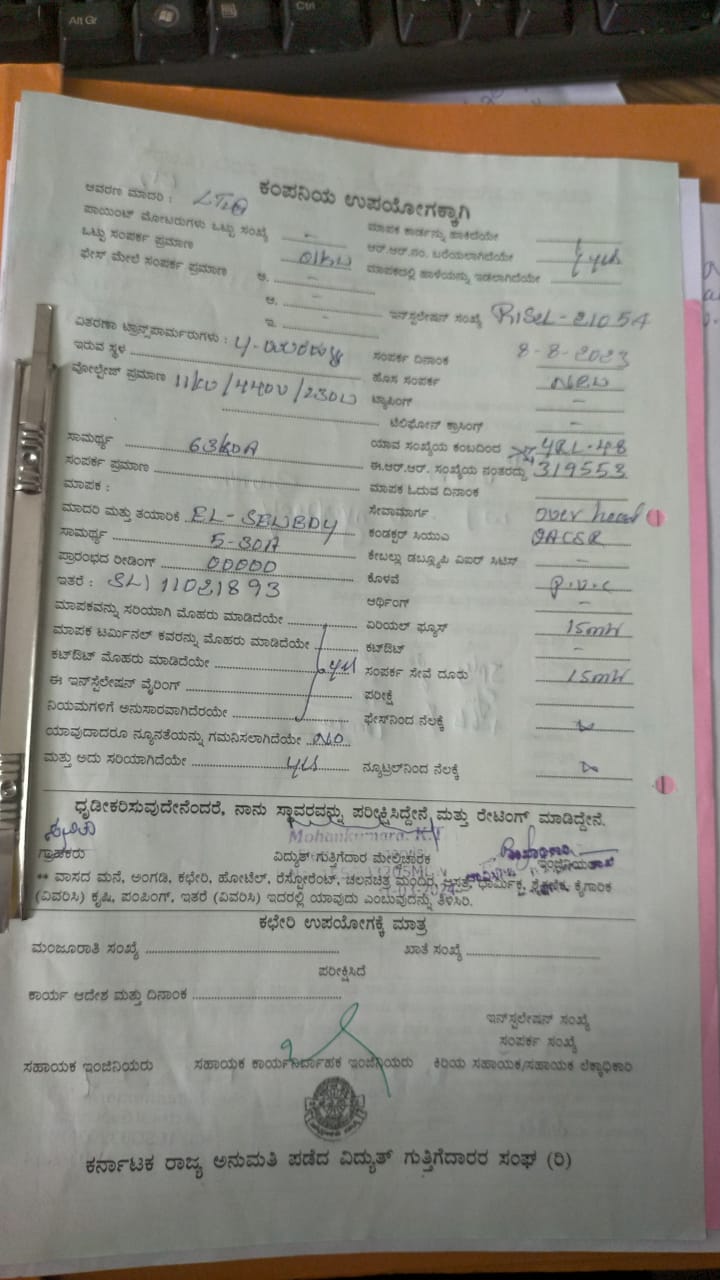 Alt Gr
Ctrl
ಕಂಪನಿಯ ಉಪಯೋಗಕ್ಕಾಗಿ
ಆವರಣ ಮಾದರಿ :
ಪಾಯಿಂಟ್ ಮೋಟರುಗಳು ಒಟ್ಟು ಸಂಖ್ಯೆ - ಮಾಪಕ ಕಾರ್ಡನ್ನು ಹಾಕಿದೆಯೇ
ಒಟ್ಟು ಸಂಪರ್ಕ ಪ್ರಮಾಣ 01KW ಆರ್.ಆರ್.ನಂ. ಬರೆಯಲಾಗಿದೆಯೇ yes
ಫೇಸ್ ಮೇಲೆ ಸಂಪರ್ಕ ಪ್ರಮಾಣ ಅ. - ಮಾಪಕದಲ್ಲಿ ಹಾಳೆಯನ್ನು ಇಡಲಾಗಿದೆಯೇ
ಆ. -
ಇ. - ಇನ್‌ಸ್ಟಲೇಷನ್ ಸಂಖ್ಯೆ 21054
ವಿತರಣಾ ಟ್ರಾನ್ಸ್‌ಪಾರ್ಮರುಗಳು :
ಇರುವ ಸ್ಥಳ ಸಂಪರ್ಕ ದಿನಾಂಕ 8-8-2023
ವೋಲ್ಟೇಜ್ ಪ್ರಮಾಣ 11KV/440V/230V ಹೊಸ ಸಂಪರ್ಕ NEW
ಟ್ಯಾಪಿಂಗ್ -
ಟೆಲಿಫೋನ್ ಕ್ರಾಸಿಂಗ್ -
ಸಾಮರ್ಥ್ಯ 63KVA ಯಾವ ಸಂಖ್ಯೆಯ ಕಂಬದಿಂದ
ಸಂಪರ್ಕ ಪ್ರಮಾಣ ಈ.ಆರ್.ಆರ್. ಸಂಖ್ಯೆಯ ನಂತರದ್ದು 319553
ಮಾಪಕ : ಮಾಪಕ ಓದುವ ದಿನಾಂಕ
ಮಾದರಿ ಮತ್ತು ತಯಾರಿಕೆ ಸೇವಾಮಾರ್ಗ over head
ಸಾಮರ್ಥ್ಯ 5-30A ಕಂಡಕ್ಟರ್ ಸಿಯುಎ
ಪ್ರಾರಂಭದ ರೀಡಿಂಗ್ 00000 ಕೇಬಲ್ಲು ಡಬ್ಲ್ಯೂಪಿ ವಿಐರ್ ಸಿಟಿಸ್ -
ಇತರೆ : SL) 11021893 ಕೊಳವೆ P.V.C
ಆರ್ಥಿಂಗ್ -
ಮಾಪಕವನ್ನು ಸರಿಯಾಗಿ ಮೊಹರು ಮಾಡಿದೆಯೇ ಏರಿಯಲ್ ಫ್ಯೂಸ್ 15mtr
ಮಾಪಕ ಟರ್ಮಿನಲ್ ಕವರನ್ನು ಮೊಹರು ಮಾಡಿದೆಯೇ ಕಟ್‌ಔಟ್ -
ಕಟ್‌ಔಟ್ ಮೊಹರು ಮಾಡಿದೆಯೇ yes ಸಂಪರ್ಕ ಸೇವೆ ದೂರು 15mtr
ಈ ಇನ್‌ಸ್ಟೆಲೇಷನ್ ವೈರಿಂಗ್ ಪರೀಕ್ಷೆ
ನಿಯಮಗಳಿಗೆ ಅನುಸಾರವಾಗಿದೆರೆಯೇ ಫೇಸ್‌ನಿಂದ ನೆಲಕ್ಕೆ
ಯಾವುದಾದರೂ ನ್ಯೂನತೆಯನ್ನು ಗಮನಿಸಲಾಗಿದೆಯೇ NO
ಮತ್ತು ಅದು ಸರಿಯಾಗಿದೆಯೇ yes ನ್ಯೂಟ್ರಲ್‌ನಿಂದ ನೆಲಕ್ಕೆ
ಧೃಡೀಕರಿಸುವುದೇನೆಂದರೆ, ನಾನು ಸ್ಥಾವರವನ್ನು ಪರೀಕ್ಷಿಸಿದ್ದೇನೆ ಮತ್ತು ರೇಟಿಂಗ್ ಮಾಡಿದ್ದೇನೆ.
Mohankumara. K.T
ಗ್ರಾಹಕರು ವಿದ್ಯುತ್ ಗುತ್ತಿಗೆದಾರ ಮೇಲ್ವಿಚಾರಕ
** ವಾಸದ ಮನೆ, ಅಂಗಡಿ, ಕಛೇರಿ, ಹೋಟೆಲ್, ರೆಸ್ಟೋರೆಂಟ್, ಚಲನಚಿತ್ರ ಮಂದಿರ, ಆಸ್ಪತ್ರೆ, ಧಾರ್ಮಿಕ, ಶೈಕ್ಷಣಿಕ, ಕೈಗಾರಿಕ
(ವಿವರಿಸಿ) ಕೃಷಿ, ಪಂಪಿಂಗ್, ಇತರೆ (ವಿವರಿಸಿ) ಇದರಲ್ಲಿ ಯಾವುದು ಎಂಬುವುದನ್ನು ತಿಳಿಸಿರಿ.
ಕಛೇರಿ ಉಪಯೋಗಕ್ಕೆ ಮಾತ್ರ
ಮಂಜೂರಾತಿ ಸಂಖ್ಯೆ ಖಾತೆ ಸಂಖ್ಯೆ
ಪರೀಕ್ಷಿಸಿದೆ
ಕಾರ್ಯ ಆದೇಶ ಮತ್ತು ದಿನಾಂಕ
ಇನ್‌ಸ್ಟಲೇಷನ್ ಸಂಖ್ಯೆ
ಸಂಪರ್ಕ ಸಂಖ್ಯೆ
ಸಹಾಯಕ ಇಂಜಿನಿಯರು ಸಹಾಯಕ ಕಾರ್ಯನಿರ್ವಾಹಕ ಇಂಜಿನಿಯರು ಕಿರಿಯ ಸಹಾಯಕ/ಸಹಾಯಕ ಲೆಕ್ಕಾಧಿಕಾರಿ
ಕರ್ನಾಟಕ ರಾಜ್ಯ ಅನುಮತಿ ಪಡೆದ ವಿದ್ಯುತ್ ಗುತ್ತಿಗೆದಾರರ ಸಂಘ (ರಿ)